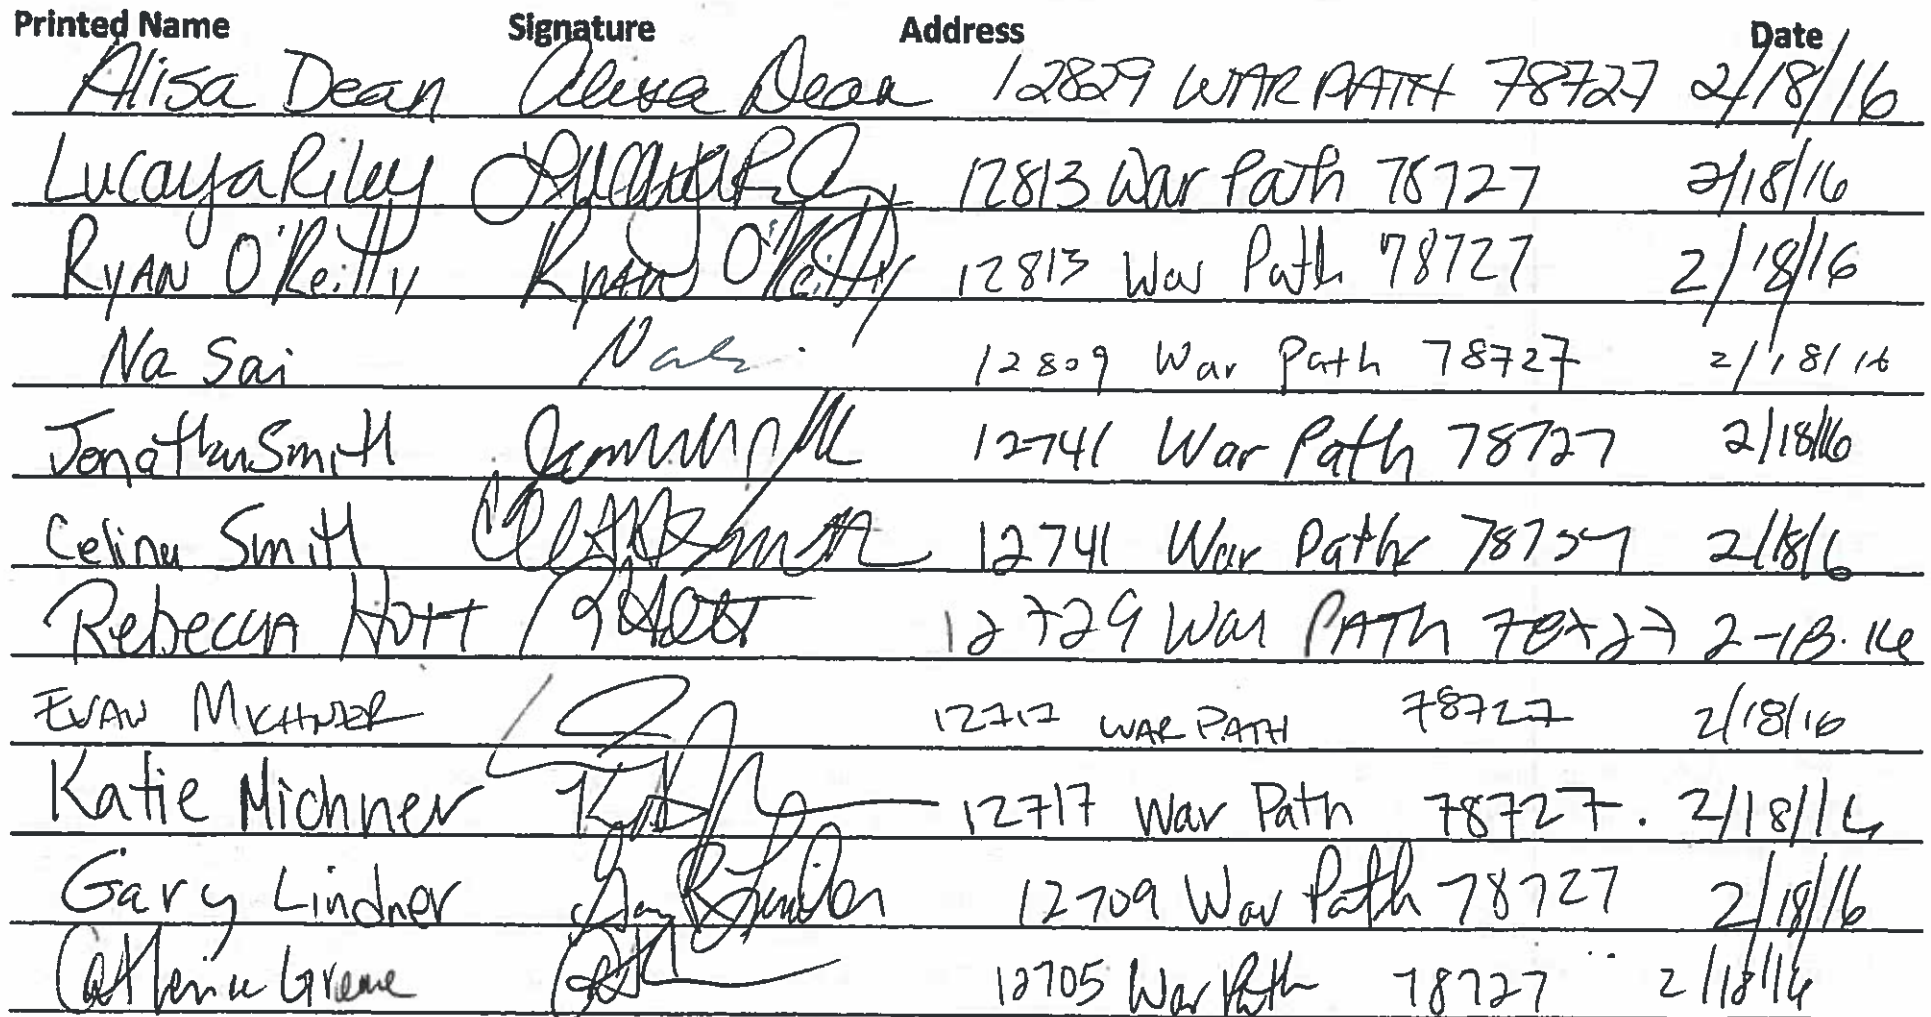 Printed Name Signature Address Date
Alisa Dean Alisa Dean 12829 WAR PATH 78727 2/18/16
Lucaya Riley 12813 War Path 78727 2/18/16
RYAN O'Reilly RYAN O'Reilly 12813 War Path 78727 2/18/16
Na Sai 12809 War Path 78727 2/18/16
Jonathan Smith 12741 War Path 78727 2/18/16
Celina Smith Smith 12741 War Path 78727 2/18/16
Rebecca Hott RHott 12729 War PATH 78727 2-18-16
EVAN MICHNER 12717 WAR PATH 78727 2/18/16
Katie Michner 12717 War Path 78727. 2/18/16
Gary Lindner Gary R Lindner 12709 War Path 78727 2/18/16
Catherine Greene 12705 War Path 78727 2/18/16